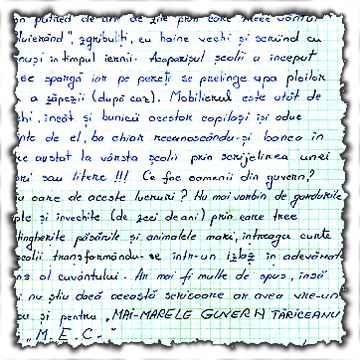 putred de ani de zile prin care trece vântul
luierând", zgribuliți, cu haine vechi și scriind cu
nuși în timpul iernii. Acoperișul școlii a început
se spargă iar pe pereți se prelinge apa ploilor
a zăpezii (după caz). Mobilierul este atât de
hi, încât și bunicii acestor copilași își aduc
inte de el, ba chiar recunoscându-și banca în
re au stat la vârsta școlii prin scrijelirea unei
ori sau litere !!! Ce fac oamenii din guvern?
iu oare de aceste lucruri? Nu mai vorbim de gardurile
pte și învechite (de zeci de ani) prin care trec
tingherite păsările și animalele mari, întreaga curte
școlii transformându-se într-un izlaz în adevărat
ns al cuvântului. Ar mai fi multe de spus, însă
nu știu dacă această scrisoare ar avea vre-un
ou și pentru „MAI-MARELE GUVERN TĂRICEANU
„M.E.C."